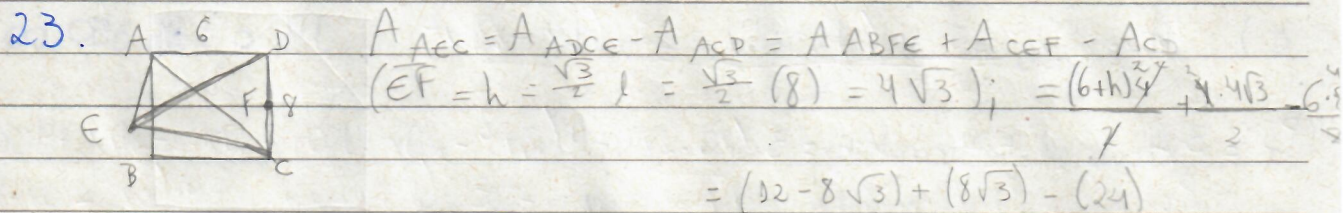 23.
A 6 D
F 8
E
B C
A_AEC = A_ADCE - A_ACD = A ABFE + A_CEF - A_CD
(EF = h = √3/2 l = √3/2 (8) = 4√3); = (6+h)4/2 + 4·4√3/2 - 6·8/2
= (12 - 8√3) + (8√3) - (24)